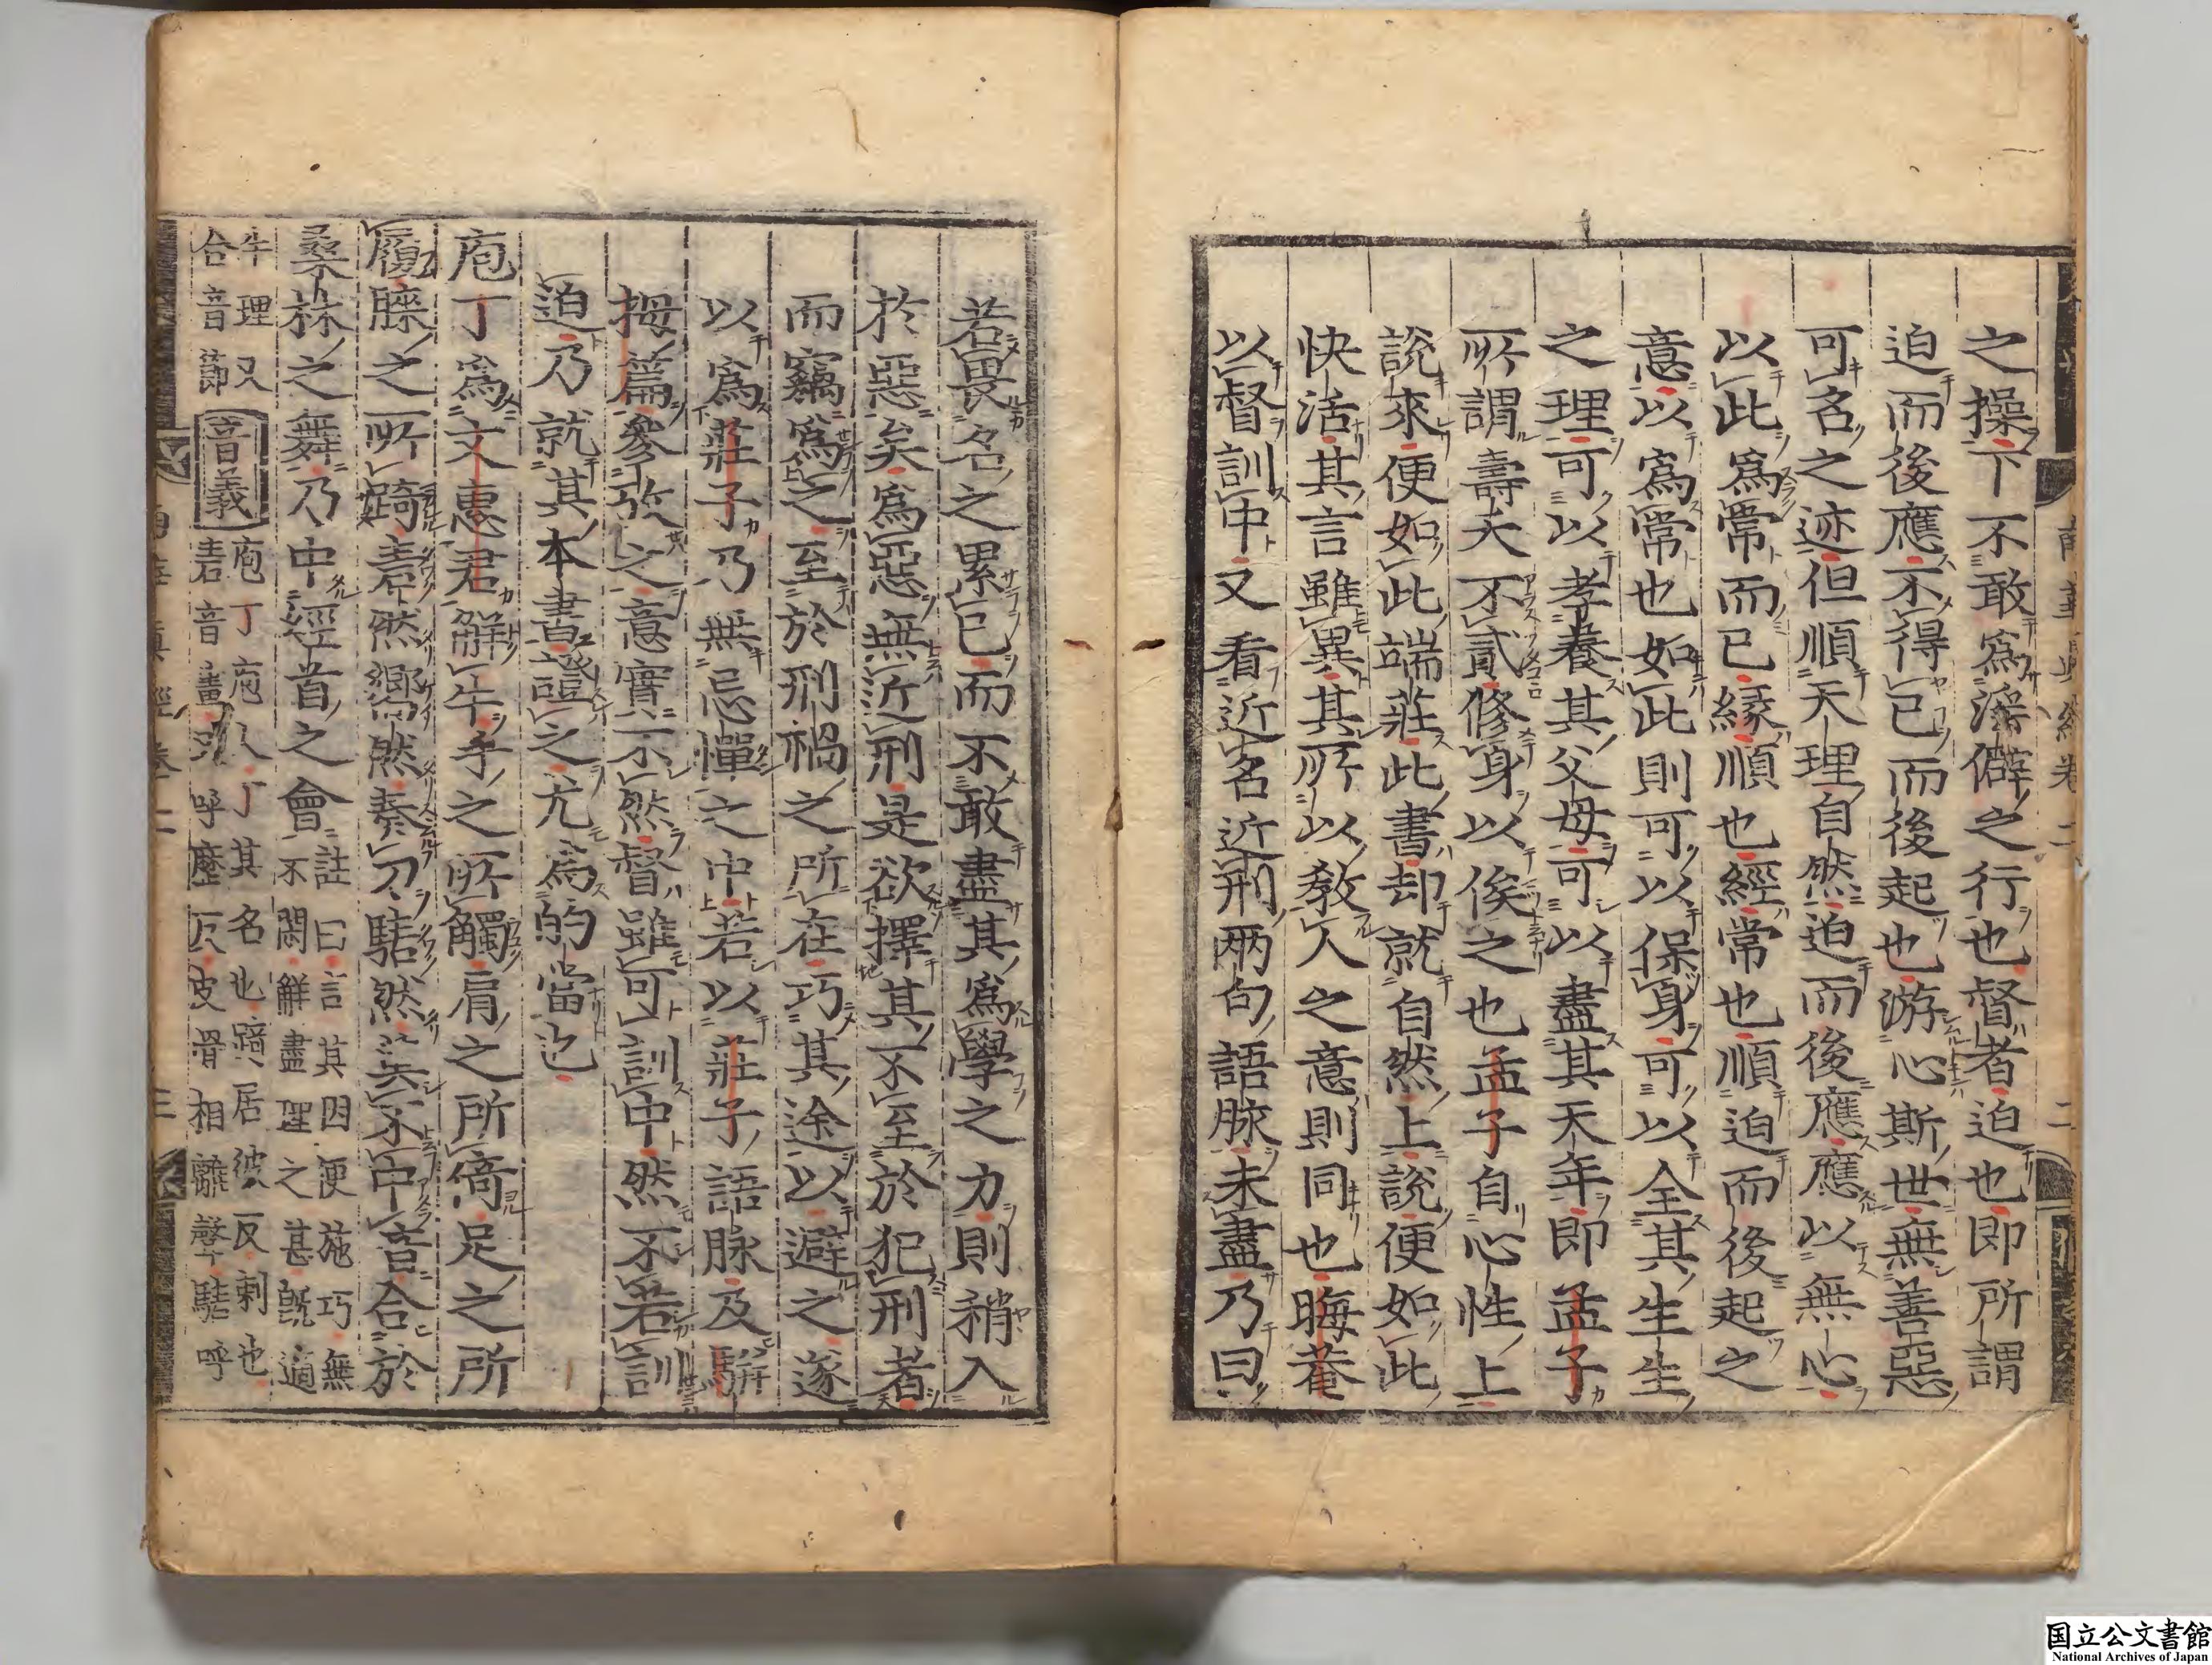 之操下不敢爲滛僻之行也督者迫也即所謂
迫而後應不得已而後起也游心斯世無善惡
可名之迹但順天理自然迫而後應應以無心
以此爲常而已縁順也經常也順迫而後起之
意以爲常也如此則可以保身可以全其生生
之理可以孝養其父母可以盡其天年即孟子
所謂壽夭不貳修身以俟之也孟子自心性上
說來便如此端莊此書却就自然上說便如此
快活其言雖異其所以教人之意則同也晦菴
以督訓中又看近名近刑兩句語脉未盡乃曰
若畏名之累已而不敢盡其爲學之力則稍入
於惡矣爲惡無近刑是欲擇其不至於犯刑者
而竊爲之至於刑禍之所在巧其途以避之遂
以爲莊子乃無忌憚之中若以莊子語脉及騈
拇篇參攷之意實不然督雖可訓中然不若訓
迫乃就其本書證之尤爲的當也
庖丁爲文惠君解牛手之所觸肩之所倚足之所
履膝之所踦砉然嚮然奏刀騞然莫不中音合於
桑林之舞乃中經首之會
註曰言其因便施巧無
不閑解盡理之甚旣適
牛理又
合音節
音義
庖丁庖人丁其名也踦居彼反刺也
砉音畫 呼歷 皮骨相離聲騞呼
南華真經卷二
二
南華真經卷二
三
国立公文書館
National Archives of Japan